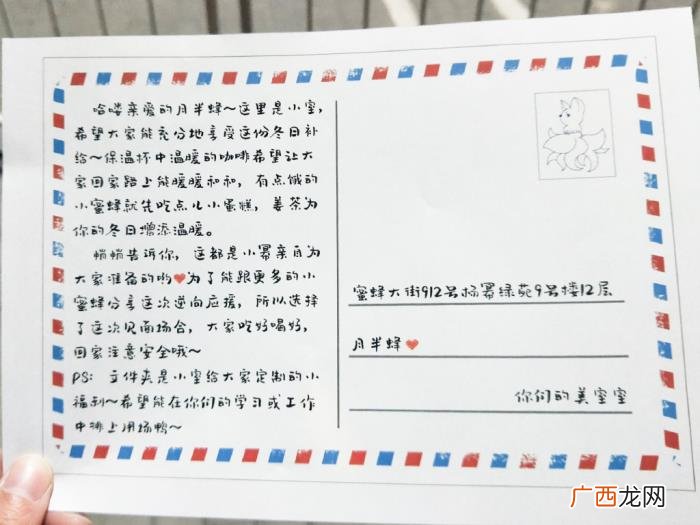 哈喽亲爱的月半蜂～这里是小室，
希望大家能充分地享受这份冬日补
给～保温杯中温暖的咖啡希望让大
家回家路上能暖暖和和，有点饿的
小蜜蜂就先吃点儿小蛋糕，姜茶为
你的冬日增添温暖。
悄悄告诉你，这都是小幂亲自为
大家准备的哟❤为了能跟更多的小
蜜蜂分享这次逆向应援，所以选择
了这次见面场合，大家吃好喝好，
回家注意安全哦～
PS：文件夹是小室给大家定制的小
福利～希望能在你们的学习或工作
中排上用场鸭～
蜜蜂大街912号杨幂绿苑9号楼12层
月半蜂❤
你们的美室室
广西龙网